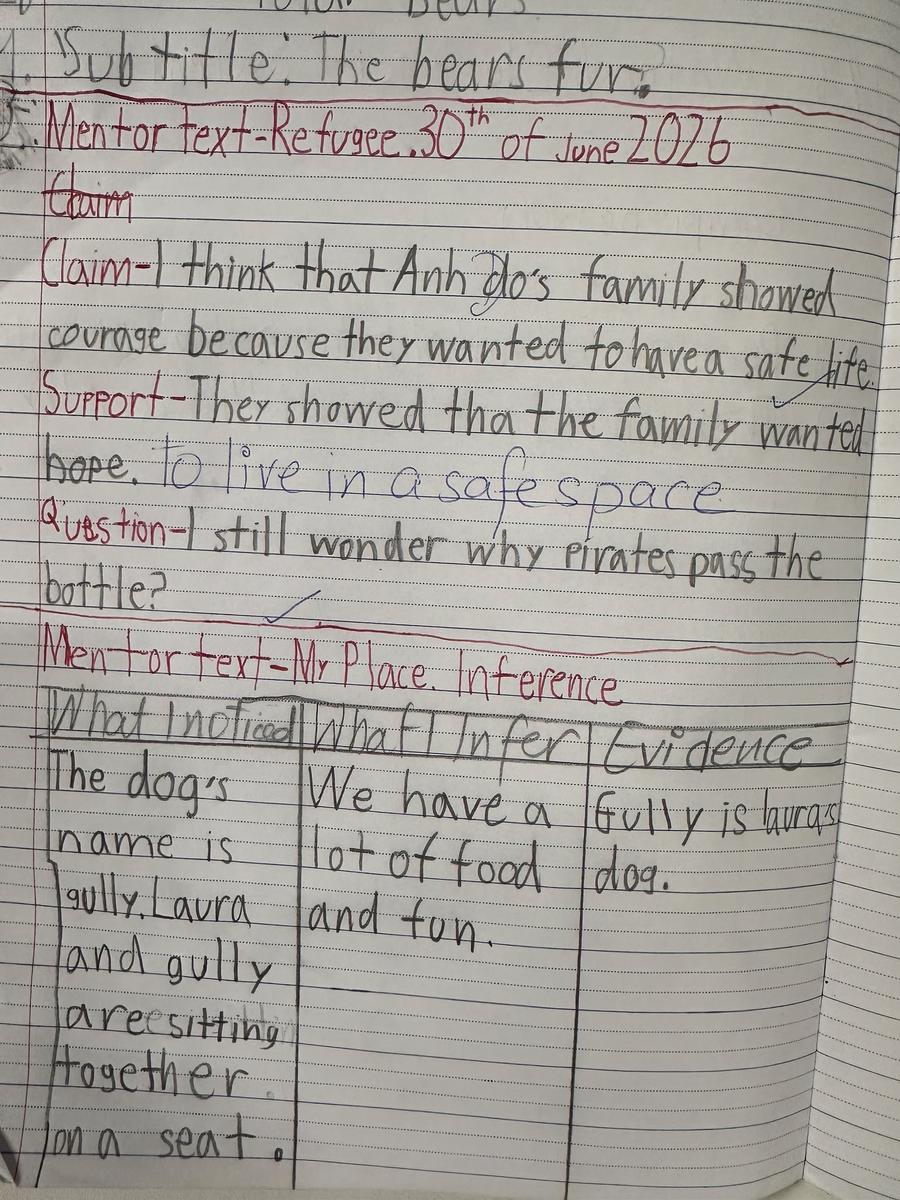 1. Subtitle: The bears fur.
Mentor text-Refugee.30th of June 2026
Claim
Claim-I think that Anh do's family showed
courage because they wanted to have a safe life.
Support-They showed tha the family wanted
hope. to live in a safe space
Question-I still wonder why pirates pass the
bottle?
Mentor text-My Place. Inference
What I noticed What I Infer Evidence
The dog's
name is
gully. Laura
and gully
are sitting
together
on a seat.
We have a
lot of food
and fun.
Gully is laura's
dog.